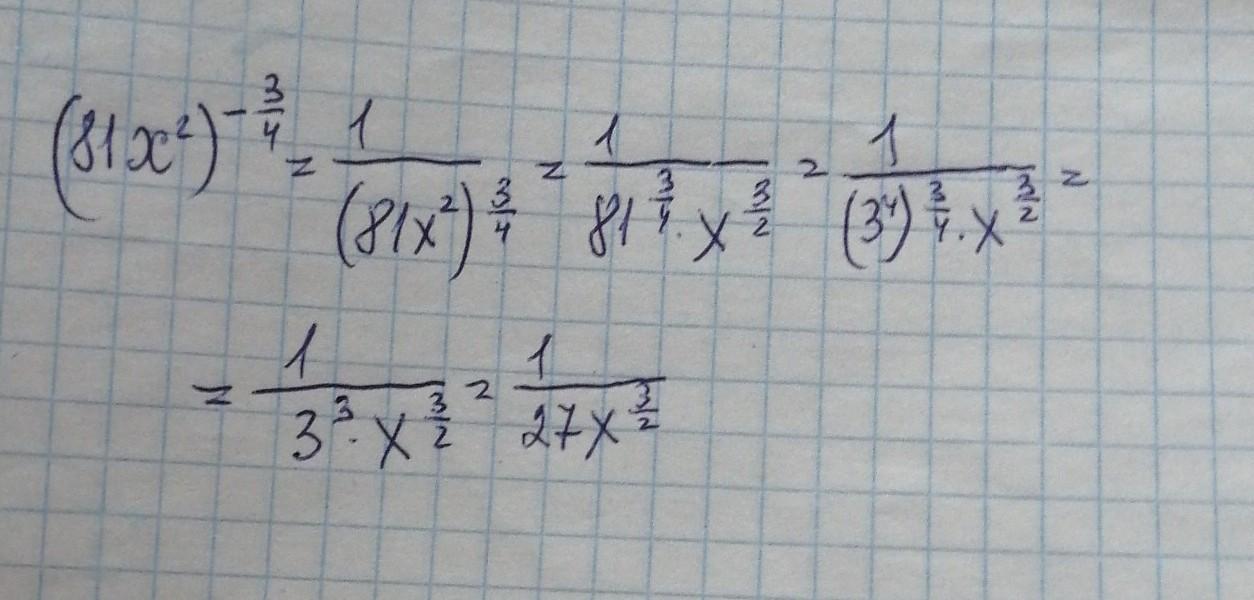 (81x²)^{-3/4} = 1/(81x²)^{3/4} = 1/(81^{3/4} · x^{3/2}) = 1/((3⁴)^{3/4} · x^{3/2}) =
= 1/(3³ · x^{3/2}) = 1/(27x^{3/2})